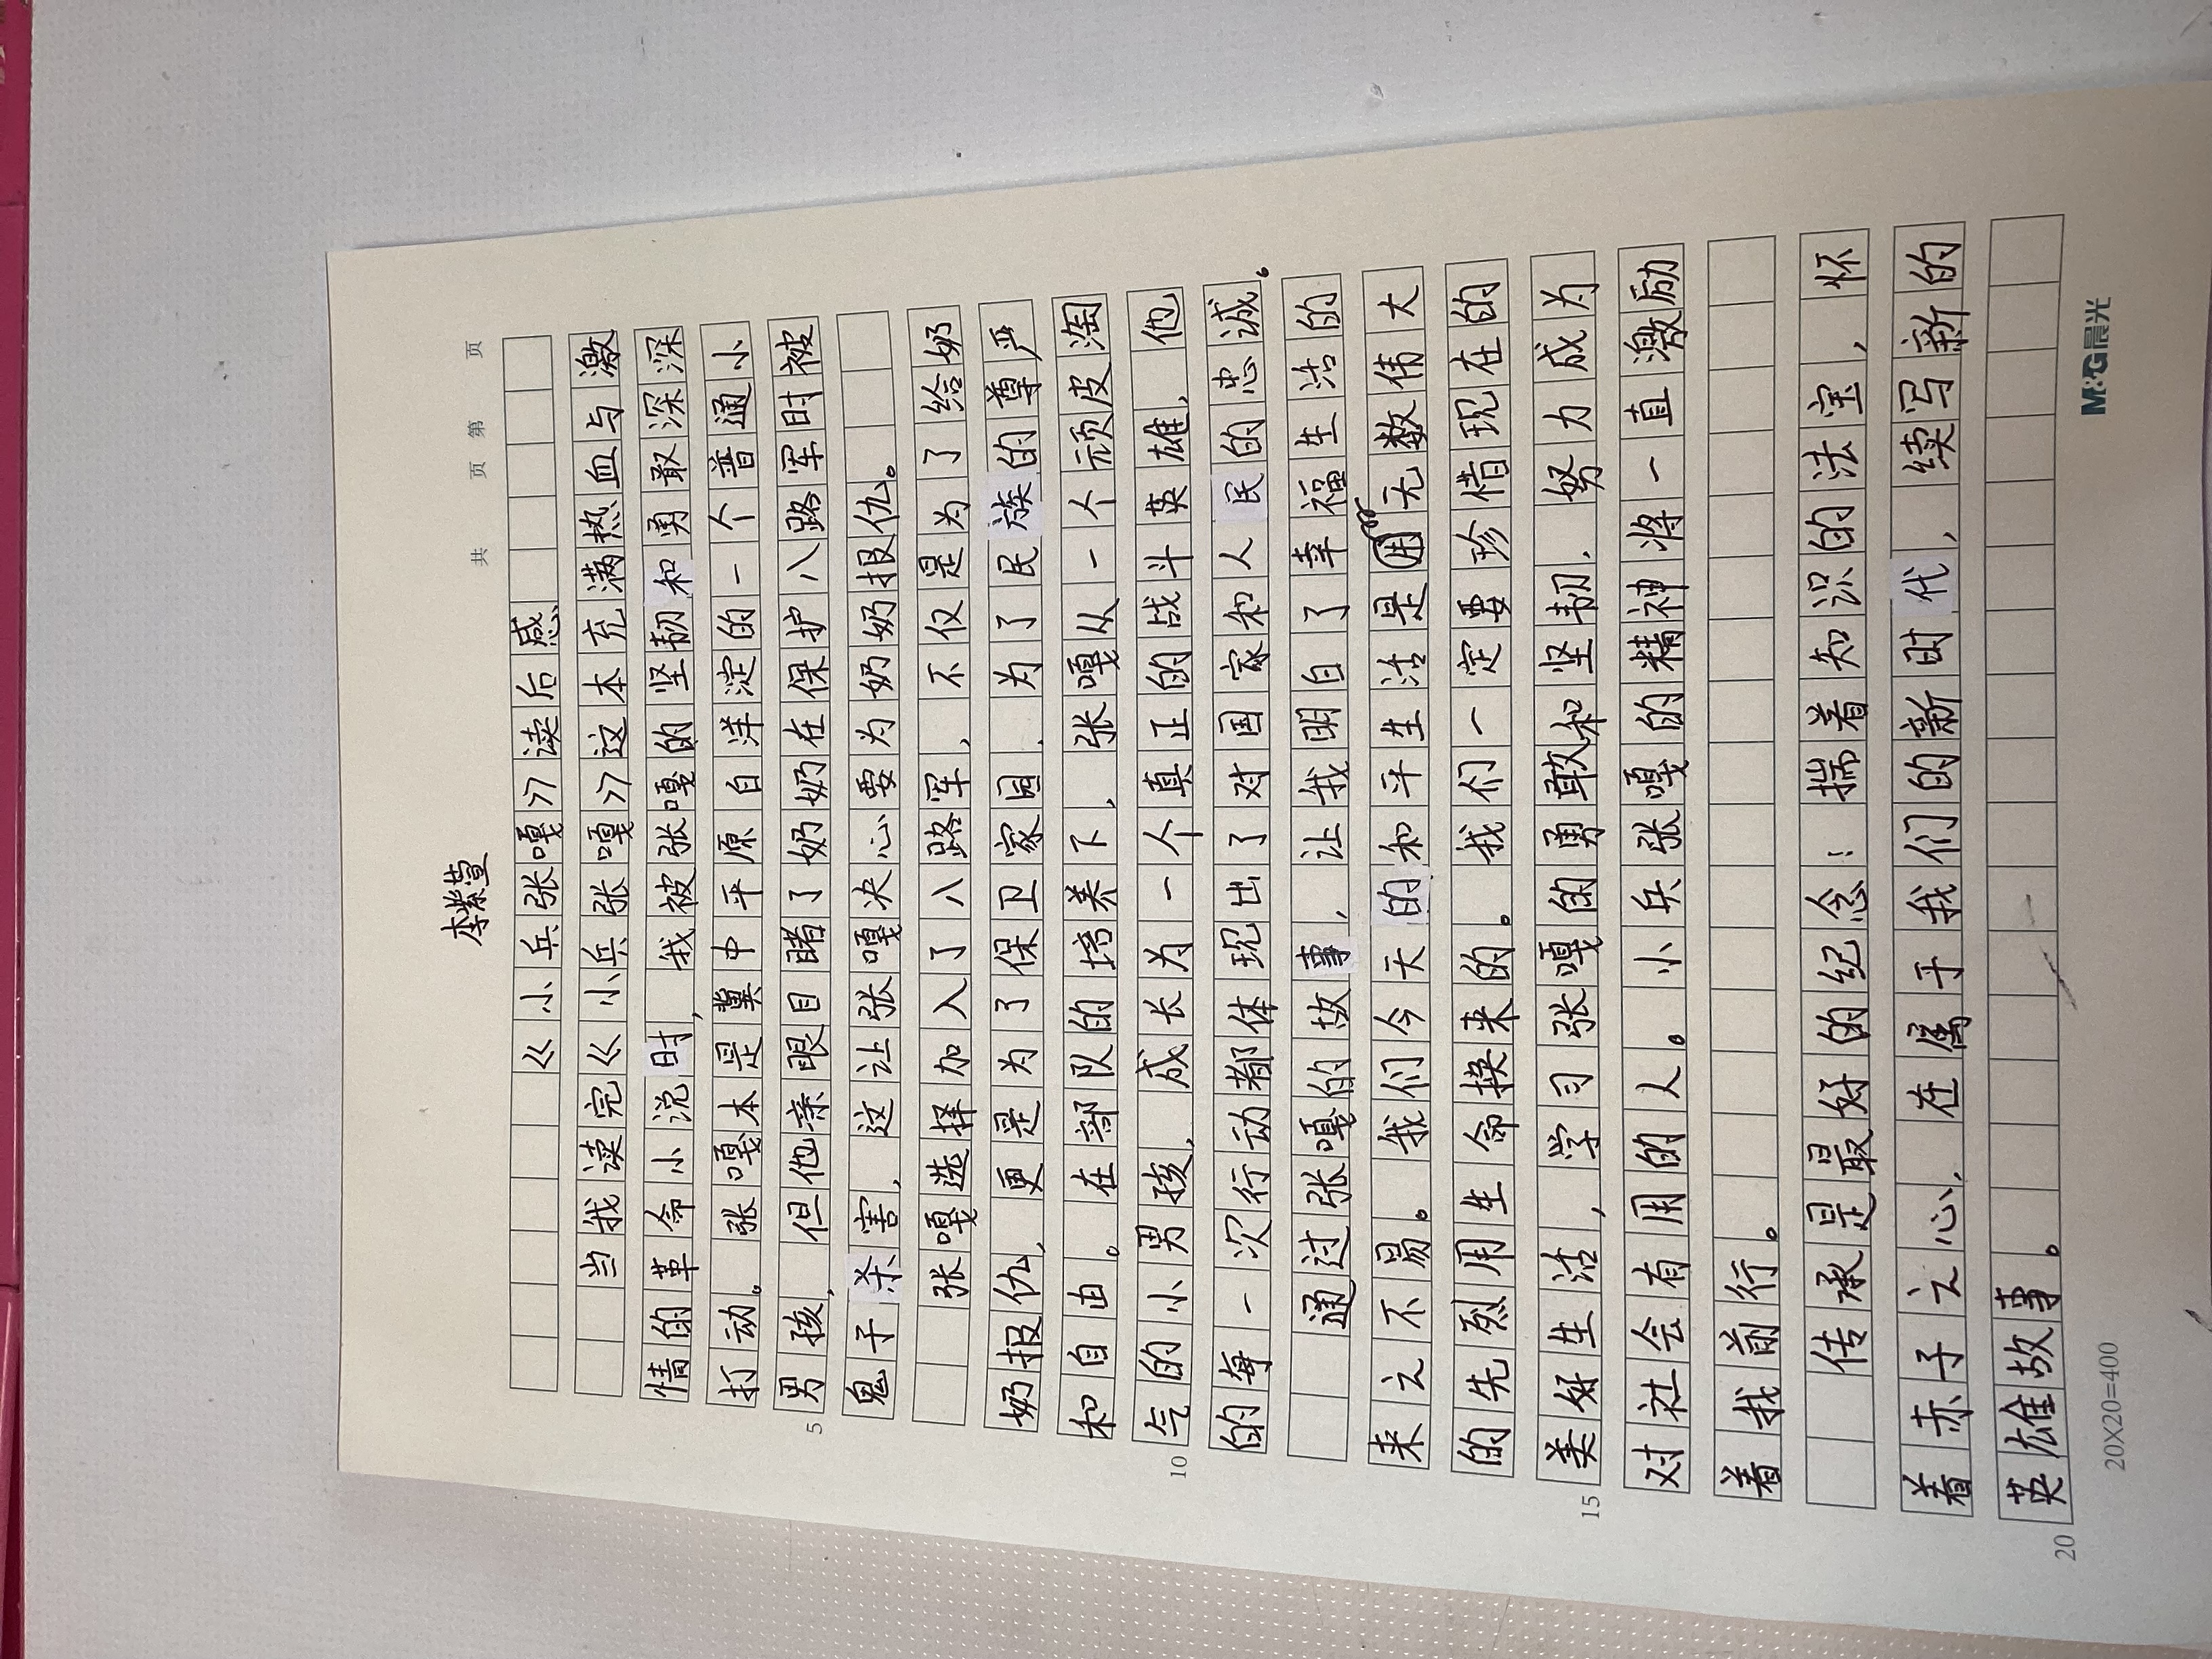 共 页 第 页
李紫萱
《小兵张嘎》读后感
当我读完《小兵张嘎》这本充满热血与激
情的革命小说时，我被张嘎的坚韧和勇敢深深
打动。张嘎本是冀中平原白洋淀的一个普通小
男孩，但他亲眼目睹了奶奶在保护八路军时被
鬼子杀害，这让张嘎决心要为奶奶报仇。
张嘎选择加入了八路军，不仅是为了给奶
奶报仇，更是为了保卫家园，为了民族的尊严
和自由。在部队的培养下，张嘎从一个顽皮淘
气的小男孩，成长为一个真正的战斗英雄，他
的每一次行动都体现出了对国家和人民的忠诚。
通过张嘎的故事，让我明白了幸福生活的
来之不易。我们今天的和平生活是用无数伟大
的先烈用生命换来的。我们一定要珍惜现在的
美好生活，学习张嘎的勇敢和坚韧，努力成为
对社会有用的人。小兵张嘎的精神将一直激励
着我前行。
传承是最好的纪念！揣着知识的法宝，怀
着赤子之心，在属于我们的新时代，续写新的
英雄故事。
5
10
15
20
20X20=400
M&G晨光